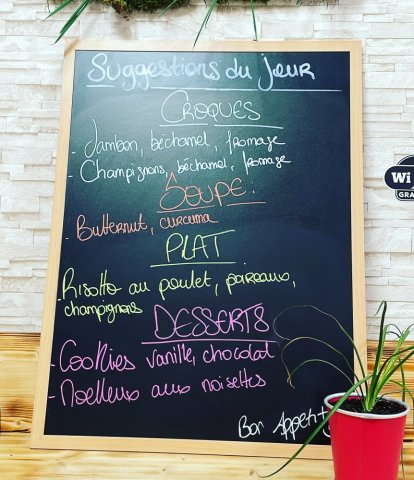 Suggestions du jour
CROQUES
- Jambon, béchamel, fromage
- Champignons, béchamel, fromage
SOUPE:
- Butternut, curcuma
PLAT
- Risotto au poulet, poireaux,
champignons
DESSERTS
- Cookies vanille, chocolat
- Moelleux aux noisettes
Bon Appetit
Wi
GRA